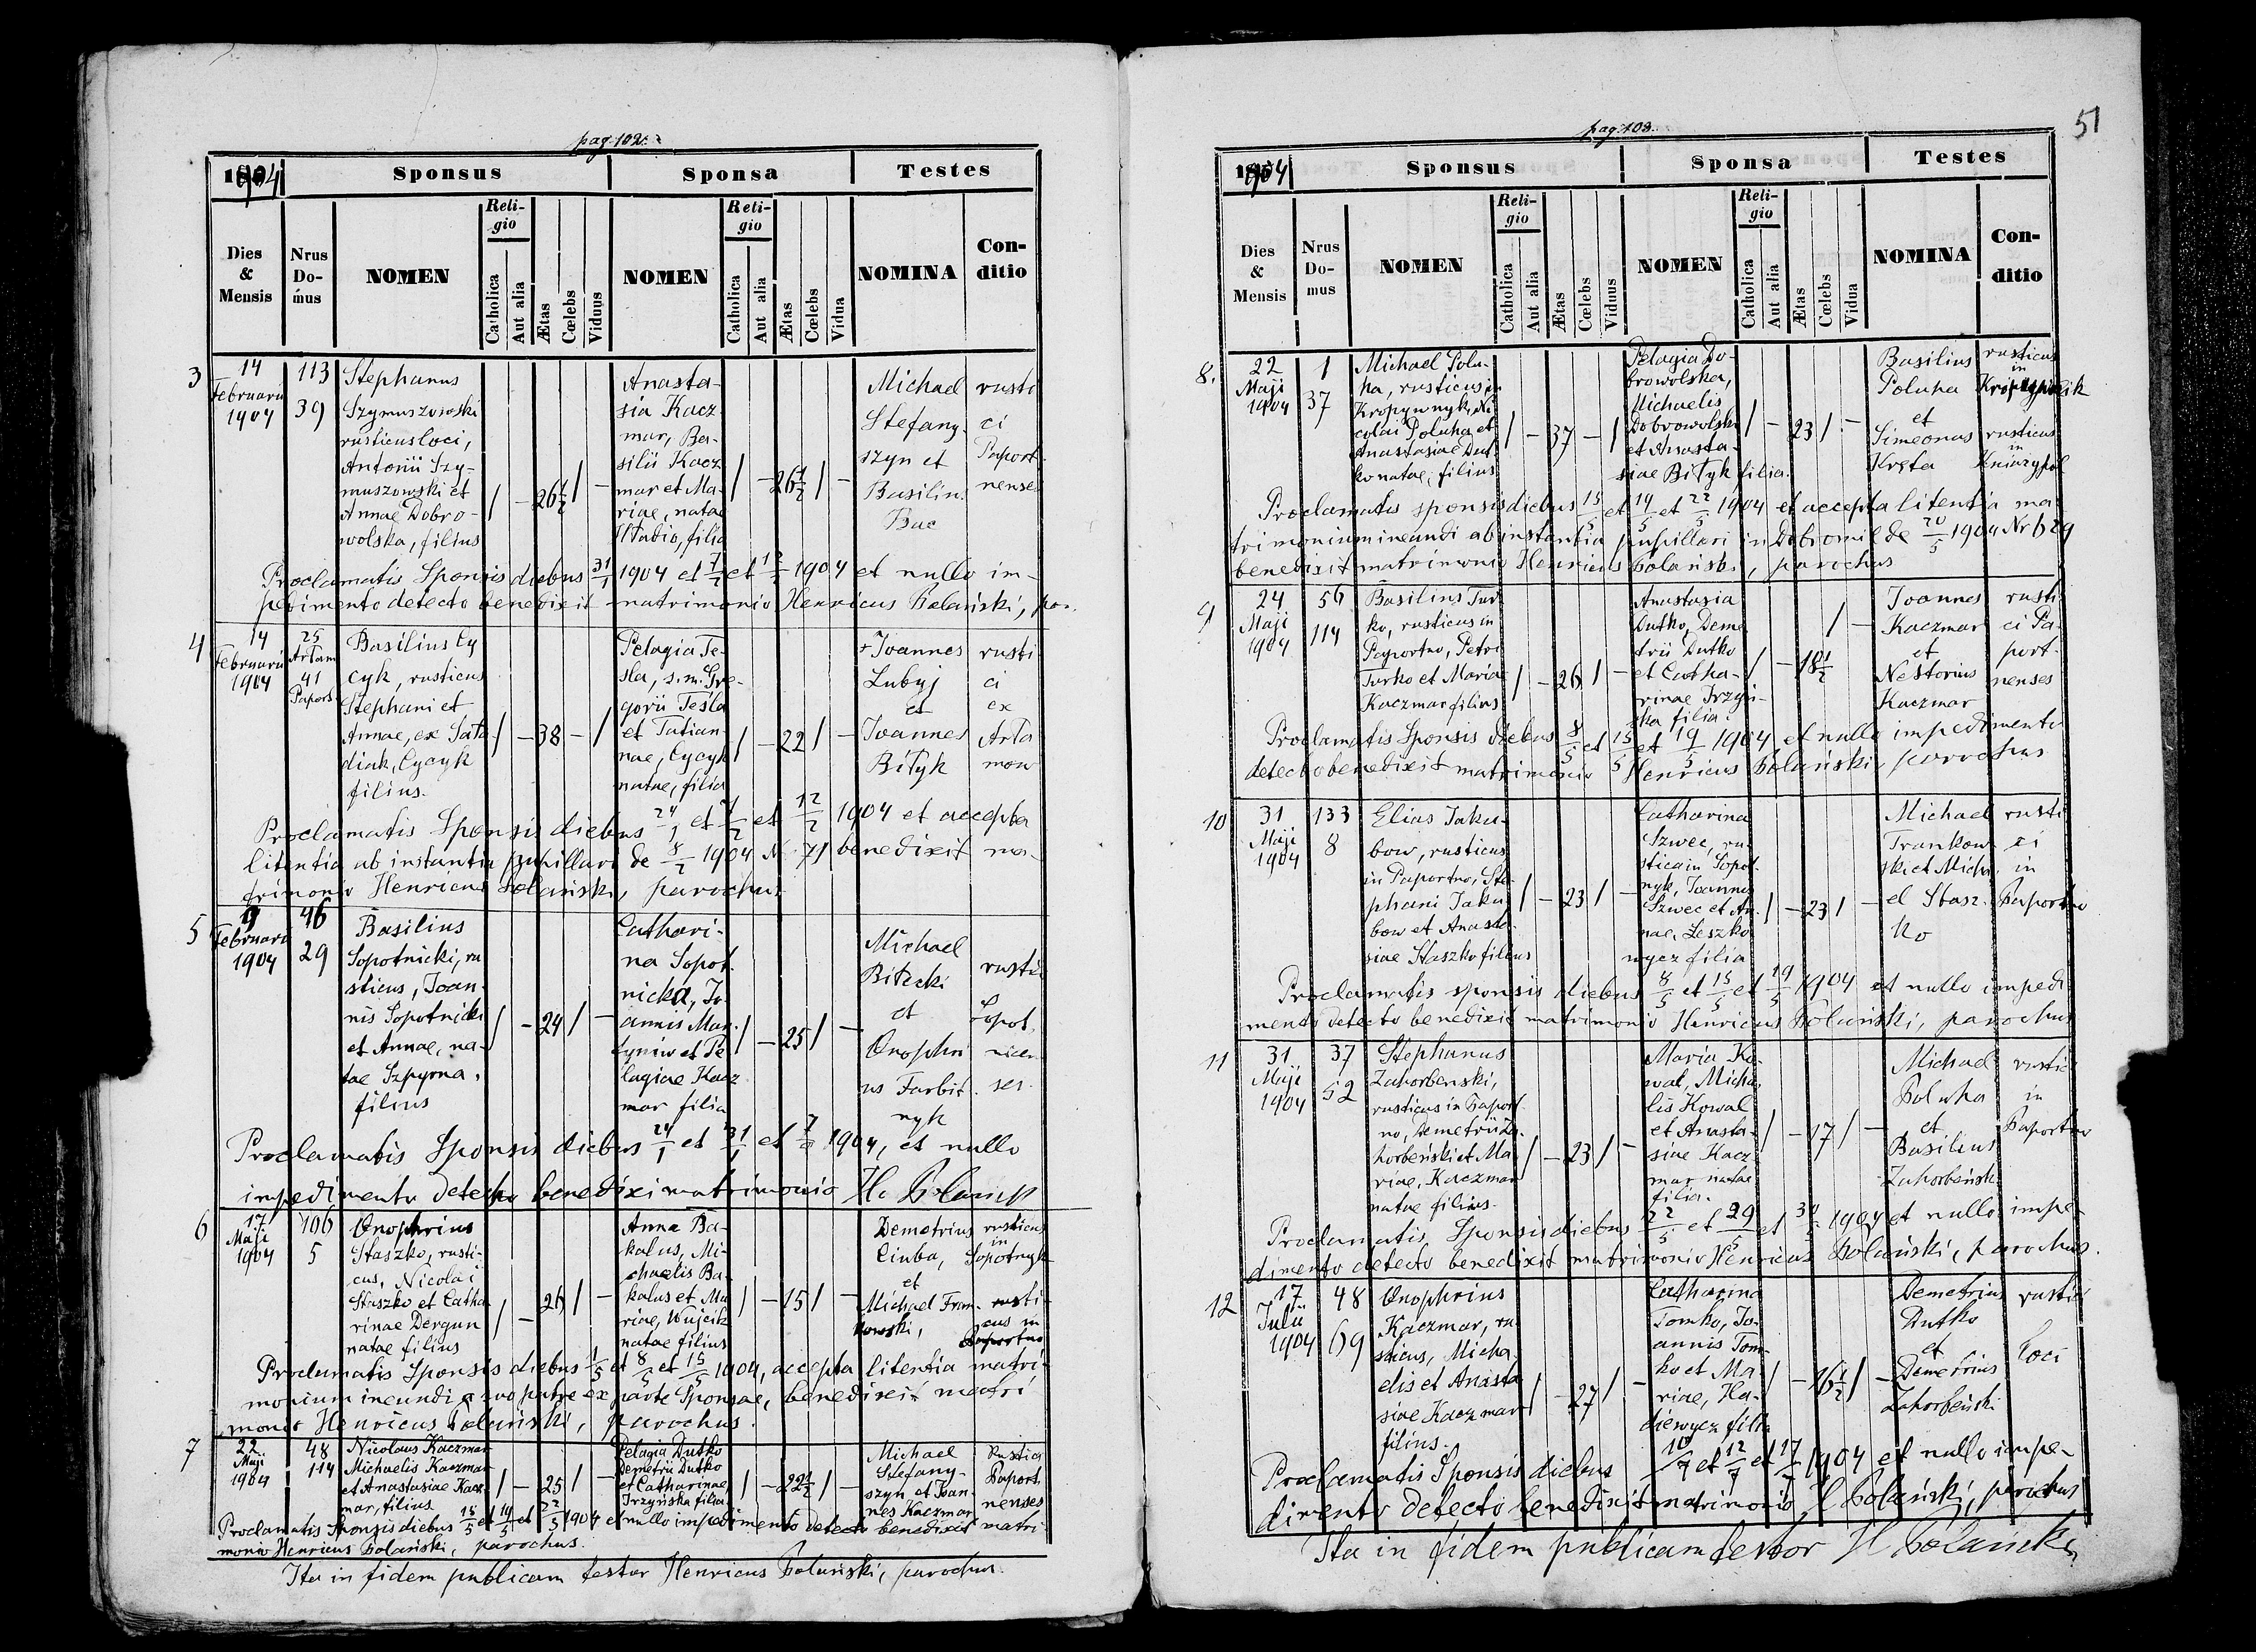 pag. 102.
1904 Sponsus Sponsa Testes
Dies & Mensis Nrus Domus NOMEN Religio Catholica Aut alia Ætas Cœlebs Viduus NOMEN Religio Catholica Aut alia Ætas Cœlebs Vidua NOMINA Conditio
3
14
Februarii
1904
113
39
Stephanus
Szymuszowski
rusticus loci,
Antonii Szy-
muszowski et
Annae Dobro-
wolska, filius
/ - 26 1/2 / -
Anasta-
sia Kacz-
mar, Ba-
silii Kacz
mar et Ma-
riae, natae
filia
/ - 26 1/2 / -
Michael
Stefany-
szyn et
Basilius
Bac
rusti
ci
Paport-
nenses
Proclamatis Sponsis diebus 31/1 1904 et 7/2 et 1904 et nullo im-
pedimento detecto benedixit matrimonio Henricus Polański, par.
4
14
Februarii
1904
25
Artam
41
Paport
Basilius Cy
cyk, rusticus
Stephani et
Annae, ex Sała
diak, Cycyk
filius.
/ - 38 - /
Pelagia Te-
sla, s.m. Gre-
gorii Tesla
et Tatian-
nae, Cycyk
natae, filia
/ - 22 / -
+ Joannes
Lubyj
et
Joannes
Biłyk
rusti
ci
ex
Arta
mow
Proclamatis Sponsis diebus 24/1 et et 12/2 1904 et accepta
litentia ab instantia pupillari de 8/2 1904 N 71 benedixit ma-
trimonio Henricus Polański, parochus
5
9
Februarii
1904
46
29
Basilius
Sopotnicki, ru
sticus, Joan-
nis Sopotnicki
et Annae, na-
tae Szpyrna,
filius
/ - 24 / -
Cathari-
na Sopot-
nicka, Jo-
annis Mar-
tyniw et Pe
lagiae Kacz
mar filia
/ - 25 / -
Michael
Bilecki
et
Onophri
us Farbit
nyk
rustici
Sopot
nicen
ses.
Proclamatis Sponsis diebus 24/1 et 31/1 et 7/2 1904, et nullo
impedimento detecto benedixi matrimonio H. Polański
6
17
Maji
1904
106
5
Onophrius
Staszko, rusti-
cus, Nicolai
Staszko et Catha
rinae Dergun
natae filius
/ - 26 / -
Anna Ba-
kalus, Mi-
chaelis Ba-
kalus et Ma
riae, Wujcik
natae filius
/ - 15 / -
Demetrius
Ciuba,
et
Michael Fran-
kowski,
rusticus
in
Sopotnyk
rusti-
cus in
Paportno
Proclamatis Sponsis diebus 1/5 et 8/5 et 15/5 1904, accepta litentia matri-
monium ineundi a suo patre ex parte Sponsae, benedixit matri
monio Henricus Polański, parochus.
7
22
Maji
1904
48
114
Nicolaus Kaczmar
Michaelis Kaczmar
et Anastasiae Kacz-
mar, filius
/ - 25 / -
Pelagia Dutko
Demetrii Dutko
et Catharinae,
Trzyńska filia
/ - 22 1/2 / -
Michael
Stefany-
szyn et Joan-
nes Kaczmar
Rustici
Paport
nenses
Proclamatis Sponsis diebus 15/5 et 19/5 et 22/5 1904 et nullo impedimento detecto benedixit matri-
monio Henricus Polański, parochus.
Ita in fidem publicam testor Henricus Polański, parochus.
51
pag. 103.
1904 Sponsus Sponsa Testes
Dies & Mensis Nrus Domus NOMEN Religio Catholica Aut alia Ætas Cœlebs Viduus NOMEN Religio Catholica Aut alia Ætas Cœlebs Vidua NOMINA Conditio
8.
22
Maji
1904
1
37
Michael Polu-
ha, rusticus in
Kropywnyk, Ni
colai Poluha et
Anastasiae Dut
ko natae, filius
/ - 37 - /
Pelagia Do-
browolska,
Michaelis
Dobrowolski
et Anasta-
siae Biłyk filia.
/ - 23 / -
Basilius
Poluha
et
Simeonus
Kręta
rusticus
in
Kropywnik
rusticus
in
Kniazypol
Proclamatis sponsis diebus 15/5 et 19/5 et 22/5 1904 et accepta litentia ma-
trimonium ineundi ab instantia pupillari in Dobromil de 20/5 1904 Nr 629
benedixit matrimonio Henricus Polański, parochus
9
24
Maji
1904
56
114
Basilius Tur
ko, rusticus in
Paportno, Petri
Turko et Mariae
Kaczmar filius
/ - 26 / -
Anastasia
Dutko, Deme
trii Dutko
et Catha-
rinae Trzyń-
ska filia.
/ - 18 1/2 / -
Joannes
Kaczmar
et
Nestorius
Kaczmar
rusti
ci Pa-
port-
nenses
Proclamatis Sponsis diebus 8/5 et 15/5 et 19/5 1904 et nullo impedimento
detecto benedixit matrimonio Henricus Polański parochus
10
31
Maji
1904
133
8
Elias Jaku-
bow, rusticus
in Paportno, Ste-
phani Jaku
bow et Anasta-
siae Staszko filius
/ - 23 / -
Catharina
Szwec, ru-
stica in Sopot-
nyk, Joannis
Szwec et An-
nae, Leszko
wycz filia
/ - 23 / -
Michael
Frankow-
ski et Micha-
el Stasz-
ko
rusti
ci
in
Paportno
Proclamatis sponsis diebus 8/5 et 15/5 et 19/5 1904 et nullo impedi
mento detecto benedixit matrimonio Henricus Polański, parochus
11
31
Maji
1904
37
52
Stephanus
Zahorbenski,
rusticus in Paport-
no, Demetrii Za-
horbeński et Ma
riae, Kaczmar
natae filius.
/ - 23 / -
Maria Ko-
wal, Micha-
lis Kowal
et Anasta-
siae Kacz
mar natae
filia.
/ - 17 / -
Michael
Poluha
et
Basilius
Zahorbeński
rustici
in
Paportno
Proclamatis Sponsis diebus 22/5 et 29/5 et 30/5 1904 et nullo impe-
dimento detecto benedixit matrimonio Henricus Polański, parochus.
12
17
Julii
1904
48
69
Onophrius
Kaczmar, ru-
sticus, Micha-
elis et Anasta
siae Kaczmar
filius.
/ - 27 / -
Catharina
Tomko, Jo-
annis Tom-
ko et Ma-
riae, Ha-
diewycz filia
/ - 16 1/2 / -
Demetrius
Dutko
et
Demetrius
Zahorbeński
rustici
loci
Proclamatis Sponsis diebus 10/7 et 12/7 et 17/7 1904 et nullo impe-
dimento detecto benedixit matrimonio H Polański, parochus
Ita in fidem publicam testor H Polański